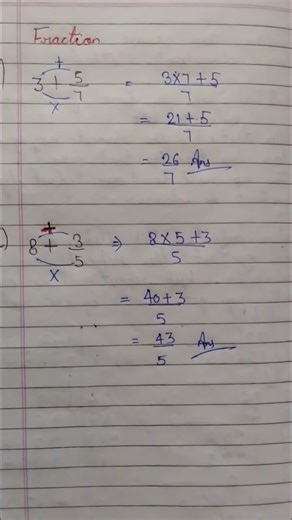 Fraction
3 + 5/7 = 3x7+5/7
+
x
= 21+5/7
= 26/7 Ans
8 + 3/5 ⇒ 8x5+3/5
+
x
= 40+3/5
= 43/5 Ans